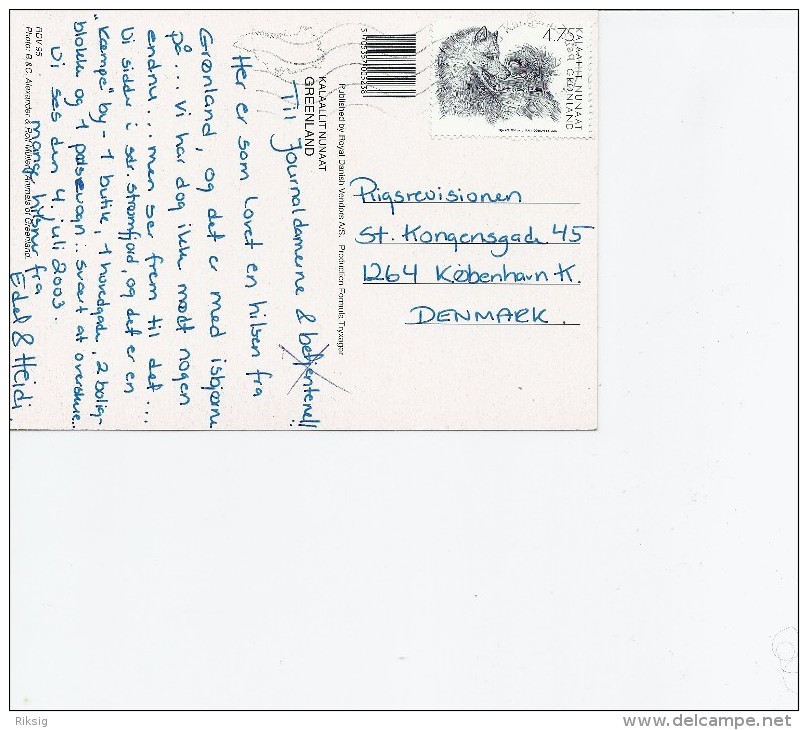 Til Journaldamerne & betjentene!!
Her er som lovet en hilsen fra
Grønland, og det er med isbjørne
på... vi har dog ikke mødt nogen
endnu... men ser frem til det...
Vi sidder i sdr. strømfjord, og det er en
"Kæmpe" by - 1 butik, 1 hovedgade, 2 bolig-
blokke og 1 pølsevogn.. svært at overskue..
Vi ses den 4. juli 2003.
mange hilsner fra
Edel & Heidi.
KALAALLIT NUNAAT
GREENLAND
Published by Royal Danish Vendors A/S. Production Formula Tryksager
Photo: B.&C. Alexander &
of Greenland.
KALAALLIT NUNAAT
GRØNLAND
4.75
Rigsrevisionen
St. Kongensgade 45
1264 København K.
DENMARK.
Riksig
www.delcampe.net